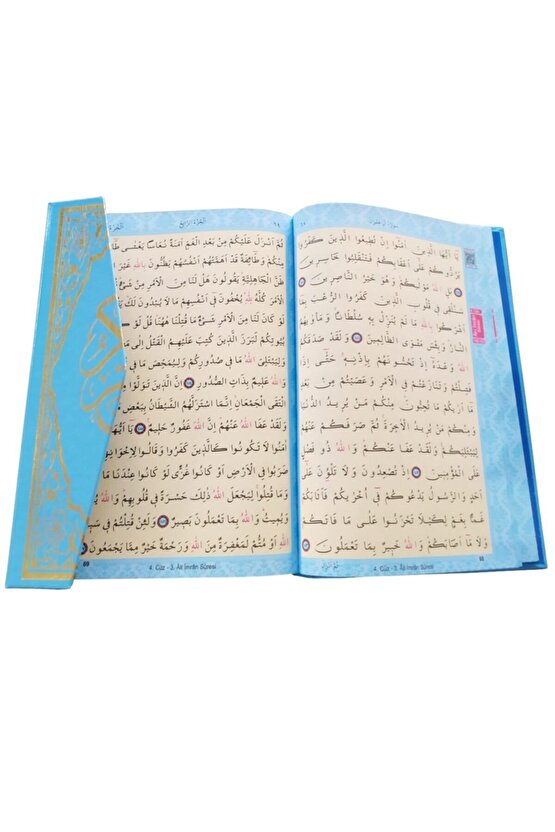 سُورَةُ اٰلِ عِمْرٰنَ ٦٨
يَا اَيُّهَا الَّذِينَ اٰمَنُوا اِنْ تُطِيعُوا الَّذِينَ كَفَرُوا
يَرُدُّوكُمْ عَلٰى اَعْقَابِكُمْ فَتَنْقَلِبُوا خَاسِرِينَ
بَلِ اللّٰهُ مَوْلٰيكُمْ وَهُوَ خَيْرُ النَّاصِرِينَ
سَنُلْقِى فِى قُلُوبِ الَّذِينَ كَفَرُوا الرُّعْبَ بِمَا
اَشْرَكُوا بِاللّٰهِ مَا لَمْ يُنَزِّلْ بِهِ سُلْطَانًا وَمَاْوٰيهُمُ
النَّارُ وَبِئْسَ مَثْوَى الظَّالِمِينَ وَلَقَدْ صَدَقَكُمُ
اللّٰهُ وَعْدَهُ اِذْ تَحُسُّونَهُمْ بِاِذْنِهِ حَتّٰى اِذَا
فَشِلْتُمْ وَتَنَازَعْتُمْ فِى الْاَمْرِ وَعَصَيْتُمْ مِنْ بَعْدِ
مَا اَرٰيكُمْ مَا تُحِبُّونَ مِنْكُمْ مَنْ يُرِيدُ الدُّنْيَا
وَمِنْكُمْ مَنْ يُرِيدُ الْاٰخِرَةَ ثُمَّ صَرَفَكُمْ عَنْهُمْ
لِيَبْتَلِيَكُمْ وَلَقَدْ عَفَا عَنْكُمْ وَاللّٰهُ ذُو فَضْلٍ
عَلَى الْمُؤْمِنِينَ اِذْ تُصْعِدُونَ وَلَا تَلْوُنَ عَلٰى
اَحَدٍ وَالرَّسُولُ يَدْعُوكُمْ فِى اُخْرٰيكُمْ فَاَثَابَكُمْ
غَمًّا بِغَمٍّ لِكَيْلَا تَحْزَنُوا عَلٰى مَا فَاتَكُمْ
وَلَا مَا اَصَابَكُمْ وَاللّٰهُ خَبِيرٌ بِمَا تَعْمَلُونَ
ثُمَّ اَنْزَلَ
4. Cüz - 3. Âli İmrân Sûresi
68
٦٩ اَلْجُزْءُ الرَّابِعُ
ثُمَّ اَنْزَلَ عَلَيْكُمْ مِنْ بَعْدِ الْغَمِّ اَمَنَةً نُعَاسًا يَغْشٰى
مِنْكُمْ وَطَائِفَةٌ قَدْ اَهَمَّتْهُمْ اَنْفُسُهُمْ يَظُنُّونَ بِاللّٰهِ غَيْرَ
ظَنَّ الْجَاهِلِيَّةِ يَقُولُونَ هَلْ لَنَا مِنَ الْاَمْرِ مِنْ شَىْءٍ
الْاَمْرَ كُلَّهُ لِلّٰهِ يُخْفُونَ فِى اَنْفُسِهِمْ مَا لَا يُبْدُونَ لَكَ
لَوْ كَانَ لَنَا مِنَ الْاَمْرِ شَىْءٌ مَا قُتِلْنَا هٰهُنَا قُلْ لَوْ
بُيُوتِكُمْ لَبَرَزَ الَّذِينَ كُتِبَ عَلَيْهِمُ الْقَتْلُ اِلٰى
وَلِيَبْتَلِىَ اللّٰهُ مَا فِى صُدُورِكُمْ وَلِيُمَحِّصَ مَا
وَاللّٰهُ عَلِيمٌ بِذَاتِ الصُّدُورِ اِنَّ الَّذِينَ تَوَلَّوْا
الْتَقَى الْجَمْعَانِ اِنَّمَا اسْتَزَلَّهُمُ الشَّيْطَانُ بِبَعْضِ
وَلَقَدْ عَفَا اللّٰهُ عَنْهُمْ اِنَّ اللّٰهَ غَفُورٌ حَلِيمٌ يَا اَيُّهَا
اٰمَنُوا لَا تَكُونُوا كَالَّذِينَ كَفَرُوا وَقَالُوا لِاِخْوَانِهِمْ
ضَرَبُوا فِى الْاَرْضِ اَوْ كَانُوا غُزًّى لَوْ كَانُوا عِنْدَنَا مَا
وَمَا قُتِلُوا لِيَجْعَلَ اللّٰهُ ذٰلِكَ حَسْرَةً فِى قُلُوبِهِمْ وَاللّٰهُ
وَيُمِيتُ وَاللّٰهُ بِمَا تَعْمَلُونَ بَصِيرٌ وَلَئِنْ قُتِلْتُمْ فِى
اللّٰهِ اَوْ مُتُّمْ لَمَغْفِرَةٌ مِنَ اللّٰهِ وَرَحْمَةٌ خَيْرٌ مِمَّا يَجْمَعُونَ
4. Cüz - 3. Âli İmrân Sûresi
69